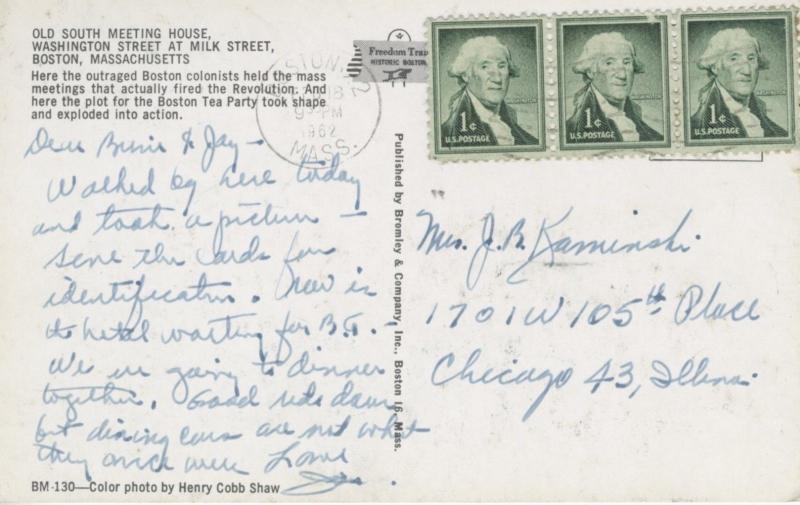 OLD SOUTH MEETING HOUSE,
WASHINGTON STREET AT MILK STREET,
BOSTON, MASSACHUSETTS
Here the outraged Boston colonists held the mass
meetings that actually fired the Revolution. And
here the plot for the Boston Tea Party took shape
and exploded into action.
Dear & Jay -
Walked by here today
and took a picture -
the cards for
identification. Now in
the hotel waiting for B.G. -
We are going to dinner
together. Good ride down
but dining cars are not what
they once were Love
BM-130—Color photo by Henry Cobb Shaw
Published by Bromley & Company, Inc., Boston 16, Mass.
STON,
PM
1962
MASS.
Freedom Trail
HISTORIC BOSTON
1¢
U.S. POSTAGE
WASHINGTON
1¢
U.S. POSTAGE
WASHINGTON
1¢
U.S. POSTAGE
WASHINGTON
Mrs. J. B. Kaminski
1701 W 105th Place
Chicago 43, Illinois